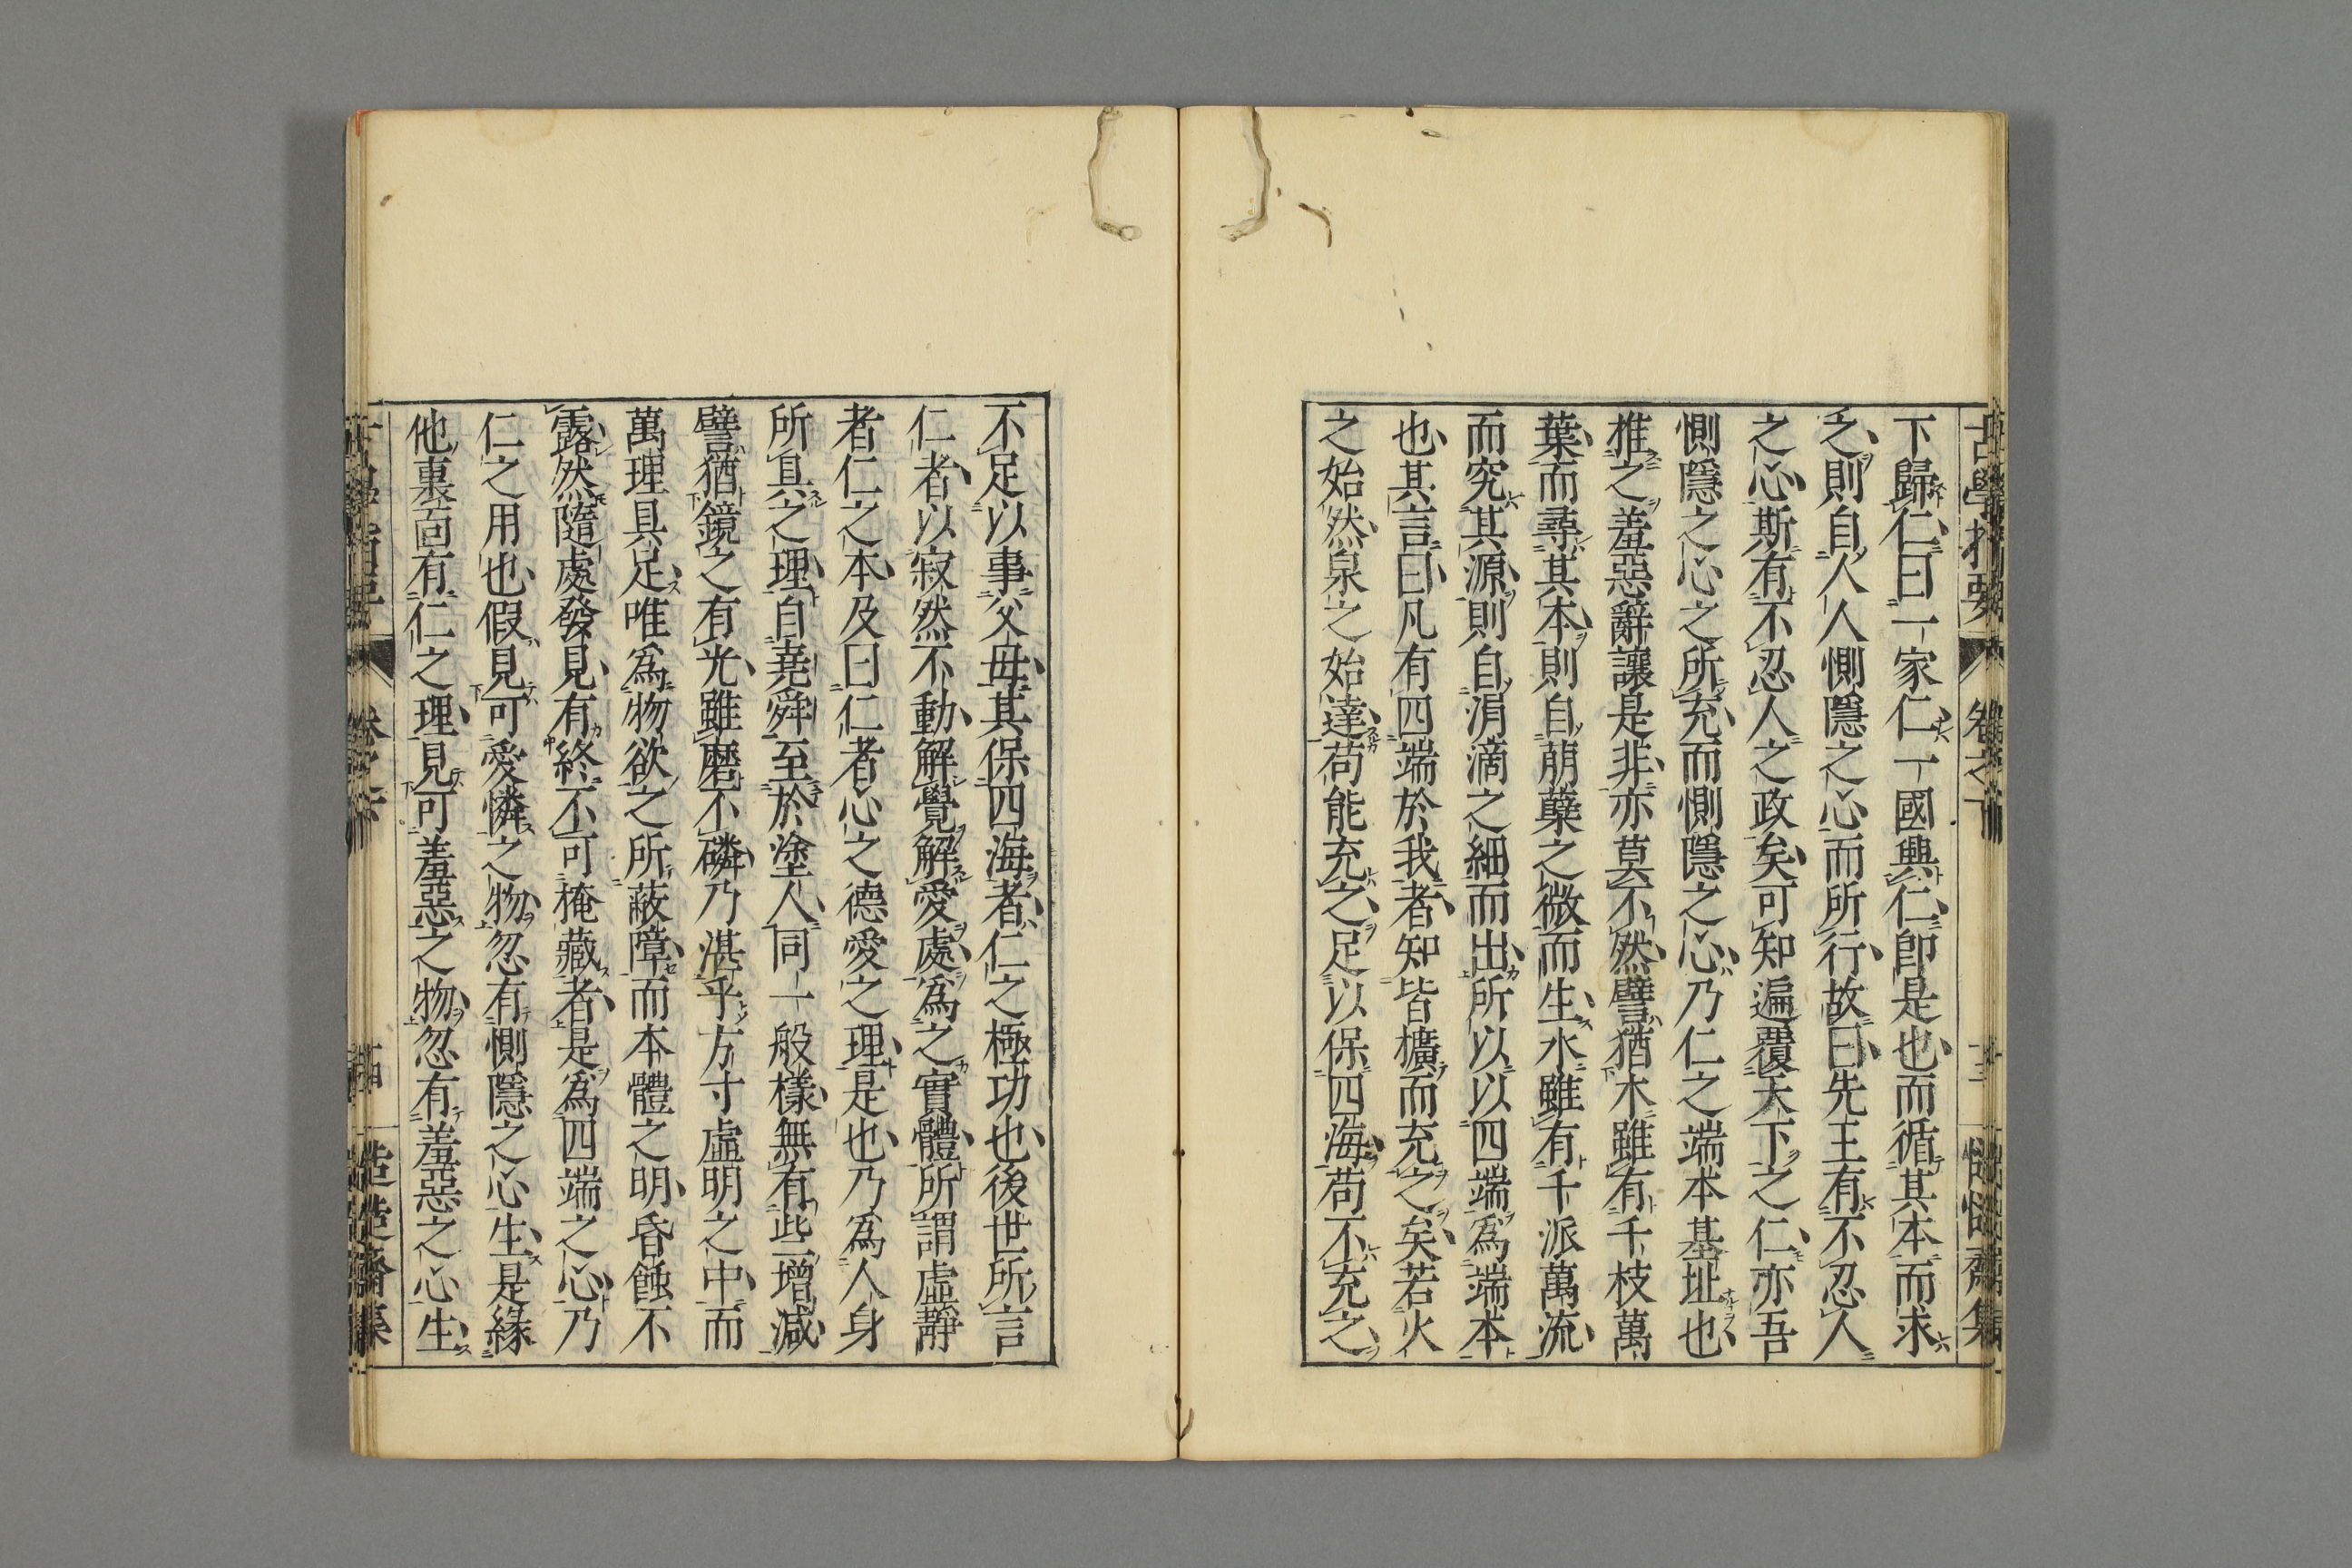 古學指要
卷之下
下歸仁曰一家仁一國興仁卽是也而循其本而求
之則自人人惻隱之心而所行故曰先王有不忍人
之心斯有不忍人之政矣可知遍覆天下之仁亦吾
惻隱之心之所充而惻隱之心乃仁之端本基址也
推之羞惡辭讓是非亦莫不然譬猶木雖有千枝萬
葉而尋其本則自萠蘖之微而生水雖有千派萬流
而究其源則自涓滴之細而出所以以四端爲端本
也其言曰凡有四端於我者知皆擴而充之矣若火
之始然泉之始達苟能充之足以保四海苟不充之
不足以事父母其保四海者仁之極功也後世所言
仁者以寂然不動解覺解愛處爲之實體所謂虛靜
者仁之本及曰仁者心之德愛之理是也乃爲人身
所具之理自堯舜至於塗人同一般樣無有些增減
譬猶鏡之有光雖磨不磷乃湛乎方寸虛明之中而
萬理具足唯爲物欲之所蔽障而本體之明昏蝕不
露然隨處發見有終不可掩藏者是爲四端之心乃
仁之用也假見可愛憐之物忽有惻隱之心生是緣
他裏面有仁之理見可羞惡之物忽有羞惡之心生